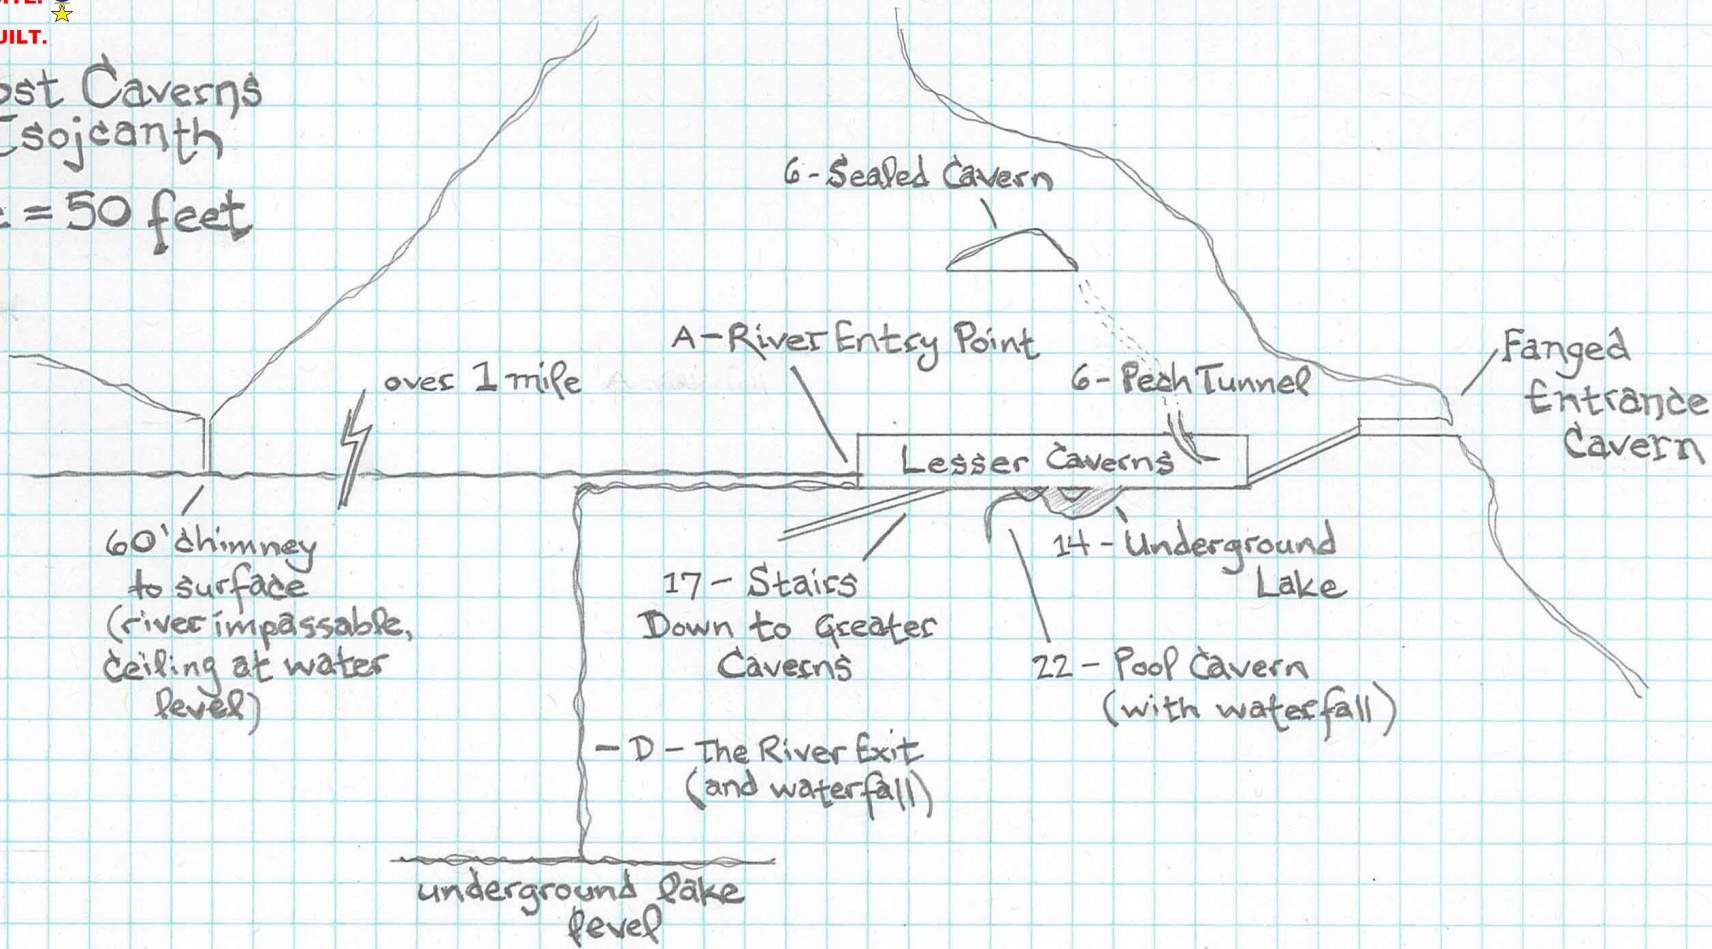 UILT.
ost Caverns
Tsojcanth
= 50 feet
6 - Sealed Cavern
A - River Entry Point
over 1 mile
6 - Pech Tunnel
Fanged
Entrance
Cavern
Lesser Caverns
60' chimney
to surface
(river impassable,
ceiling at water
level)
17 - Stairs
Down to Greater
Caverns
14 - Underground
Lake
22 - Pool Cavern
(with waterfall)
- D - The River Exit
(and waterfall)
underground lake
level